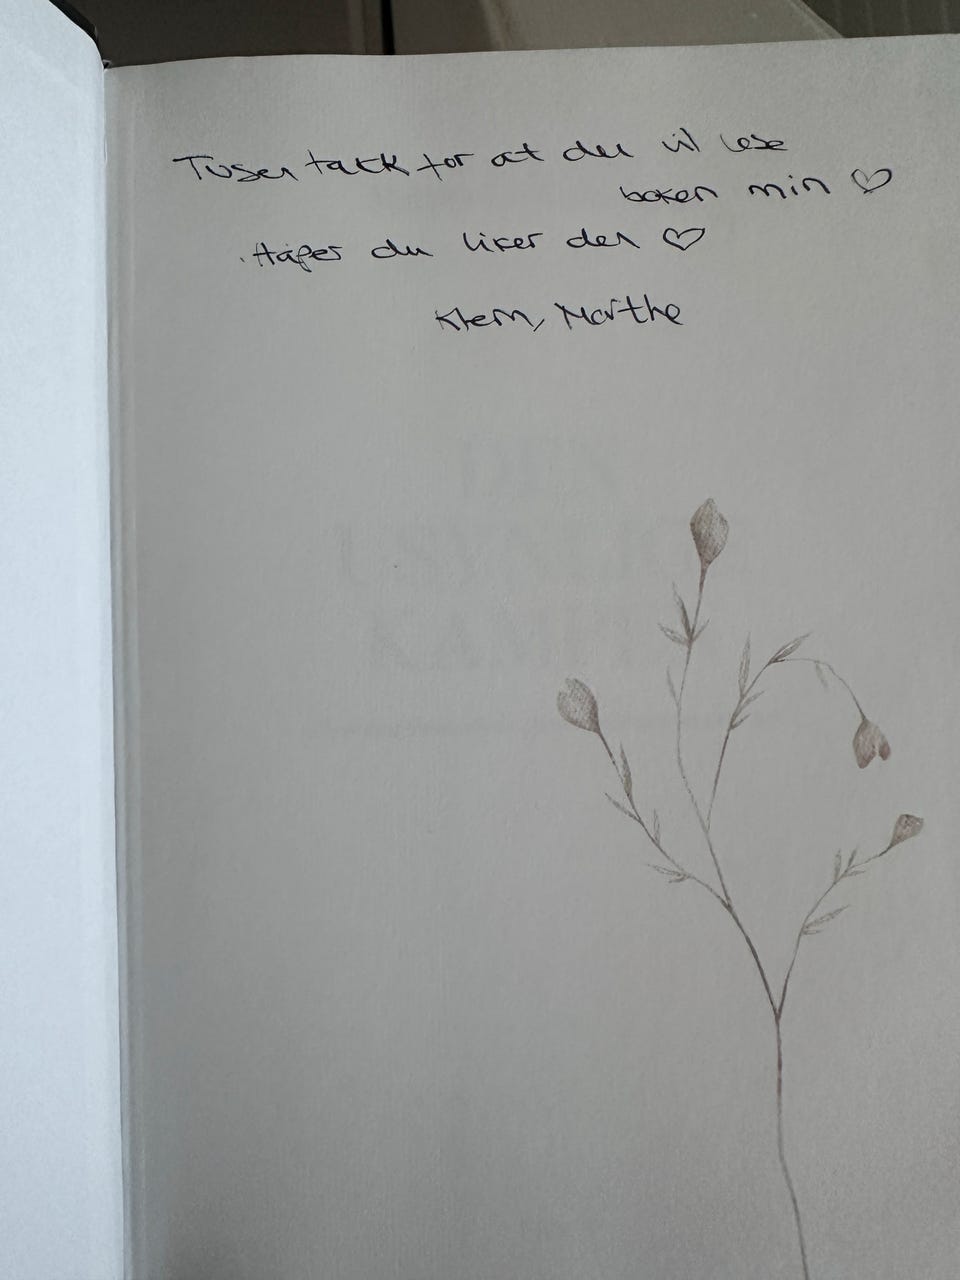 Tusen takk for at du vil lese
boken min ♡
Håper du liker den ♡
Klem, Marthe